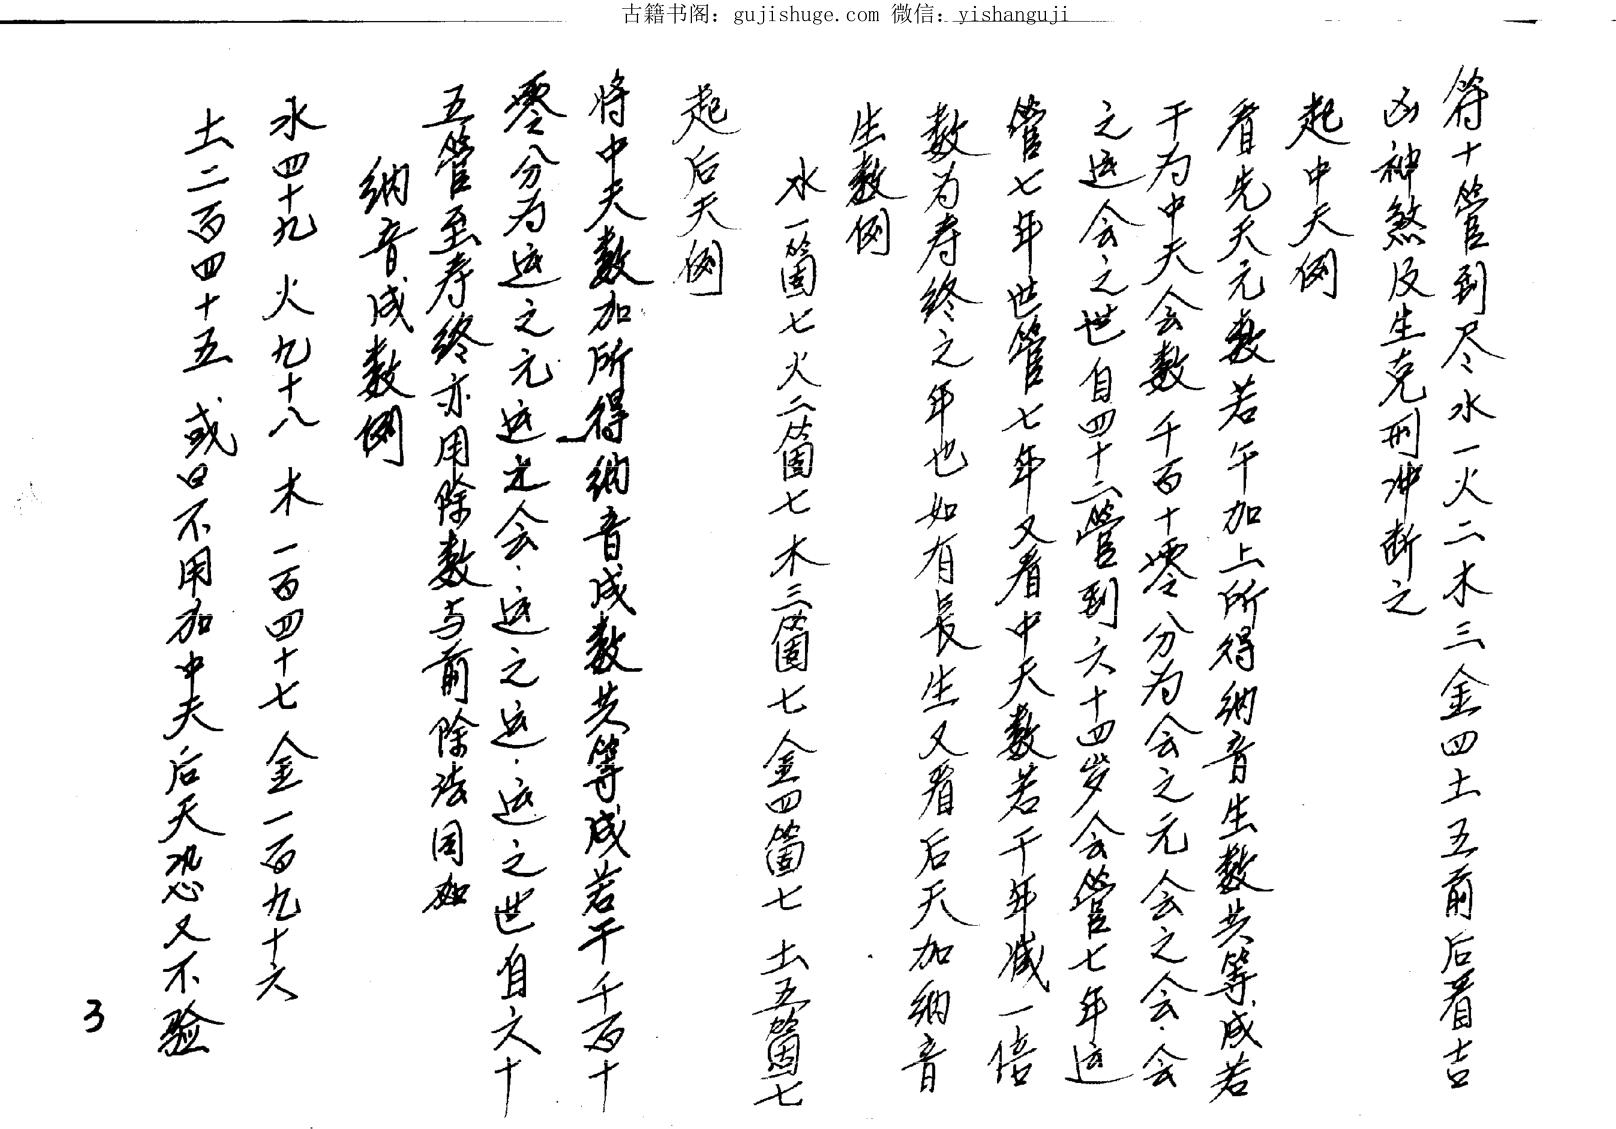 古籍书阁：gujishuge.com 微信：yishanguji
符十管到尽水一火二木三金四土五前后看吉
凶神煞及生克刑冲断之
起中天例
看先天元数若午加上所得纳音生数共筭成若
干为中天会数千百十零分为会之元会之会会
之运会之世自四十二管到六十四岁会管七年运
管七年世管七年又看中天数若干年减一倍
数为寿终之年也如有長生又看后天加纳音
生数例
水一箇七火二箇七木三箇七金四箇七土五箇七
起后天例
将中天数加所得纳音成数共筭成若干千百十
零分为运之元运之会运之运运之世自六十
五管至寿终亦用除数与前除法同如
纳音成数例
水四十九火九十八木一百四十七金一百九十六
土二百四十五或曰不用加中天后天恐又不验
3